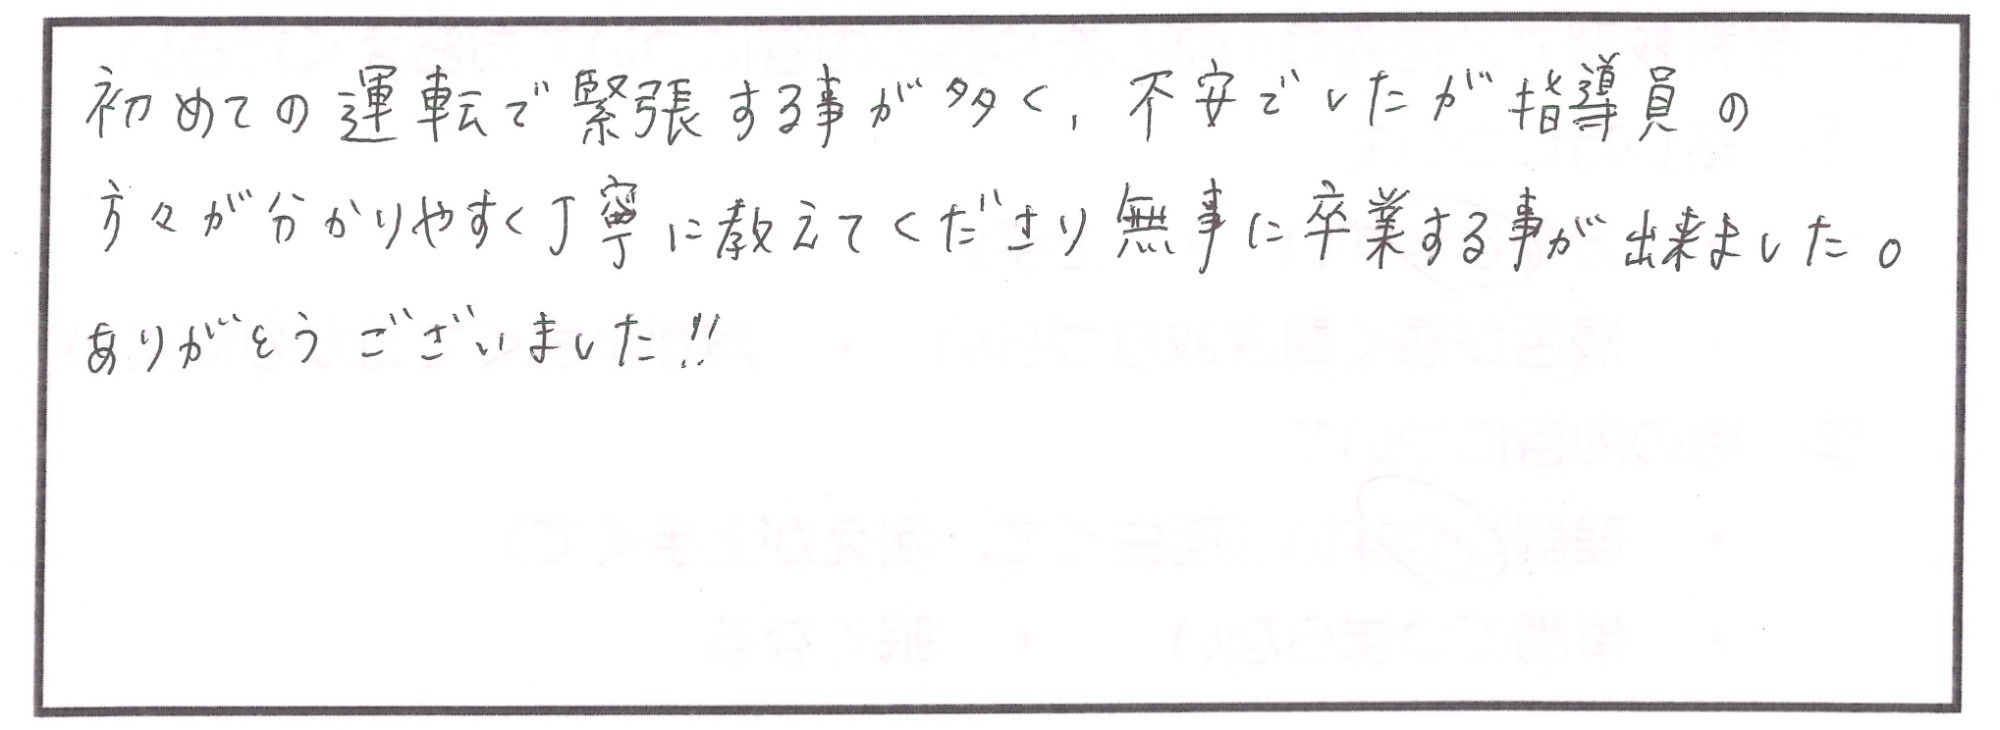 初めての運転で緊張する事が多く、不安でしたが指導員の
方々が分かりやすく丁寧に教えてくださり無事に卒業する事が出来ました。
ありがとうございました!!